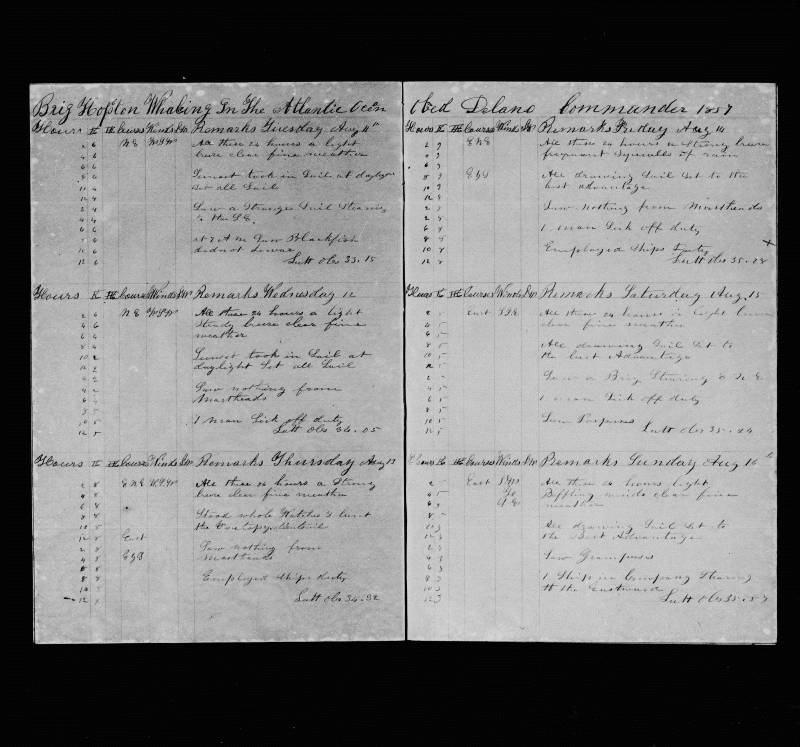 Brig Hopton Whaling In The Atlantic Ocen
Hours K HK Cours Winds LW Remarks Tuesday Aug 11th
2 6 NE WSW All these 24 hours a light
4 6 breze clear fine weather
Sunset took in Sail at daylight
10 4 Set all Sail
2 4 Saw a Strange Sail Stearing
4 4 to the SE
at 7 AM Saw Blackfish
10 6 did not Lower
12 6 Latt Obs 33.15
Hours K HK Cours Winds LW Remarks Wednesday 12
2 6 NE WSW All these 24 hours a light
4 6 Steady breze clear fine
6 6 weather
8 4 Sunset took in Sail at
10 2 daylight Set all Sail
4 2 Saw nothing from
Mastheads
10 5 1 man Sick off duty
12 5 Latt Obs 34.05
Hours K HK Cours Winds LW Remarks Thursday Aug 13
2 8 ENE WSW All these 24 hours a Strong
4 8 breze clear fine weather
8 8 Stood whole Watches
10 5 the
12 8 East
2 8 Saw nothing from
4 8 EBS Mastheads
8 8 Employed Ships duty
12 8 Latt Obs 34.32
Obed Delano Commander 1857
Hours K HK Courses Winds LW Remarks Friday Aug 14
2 9 ENE All these 24 hours a Strong breze
4 9 frequent Squalls of rain
8 9 EBS All drawing Sail Set to the
10 9 best advantage
2 9 Saw nothing from Mastheads
6 8 1 man Sick off duty
10 8 Employed Ships Duty x
12 8 Latt Obs 35.08
Hours K HK Courses Winds LW Remarks Saturday Aug 15
2 5 East SSE All these 24 hours a light breze
4 5 clear fine weather
8 5 All drawing Sail Set to
10 5 the best Advantage
2 5 Saw a Brig Stearing ENE
6 5 1 man Sick off duty
10 5 Saw Porpoises
12 5 Latt Obs 35.44
Hours K HK Courses Winds LW Remarks Sunday Aug 16th
2 5 East SW All these 24 hours light
4 5 to Baffling winds clear fine
6 9 NE weather
10 9 All drawing Sail Set to
12 9 the Best Advantage
4 9 Saw Grampuses
8 9 1 Ship in Company Stearing
10 9 to the Eastward
12 9 Latt Obs 35.57